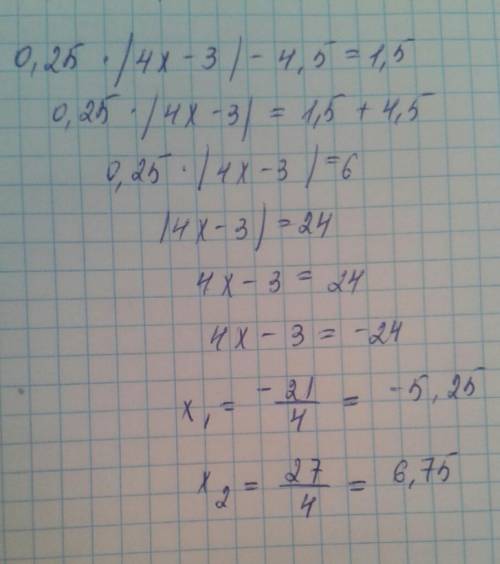 0,25 · |4x - 3| - 4,5 = 1,5
0,25 · |4x - 3| = 1,5 + 4,5
0,25 · |4x - 3| = 6
|4x - 3| = 24
4x - 3 = 24
4x - 3 = -24
x₁ = -21/4 = -5,25
x₂ = 27/4 = 6,75